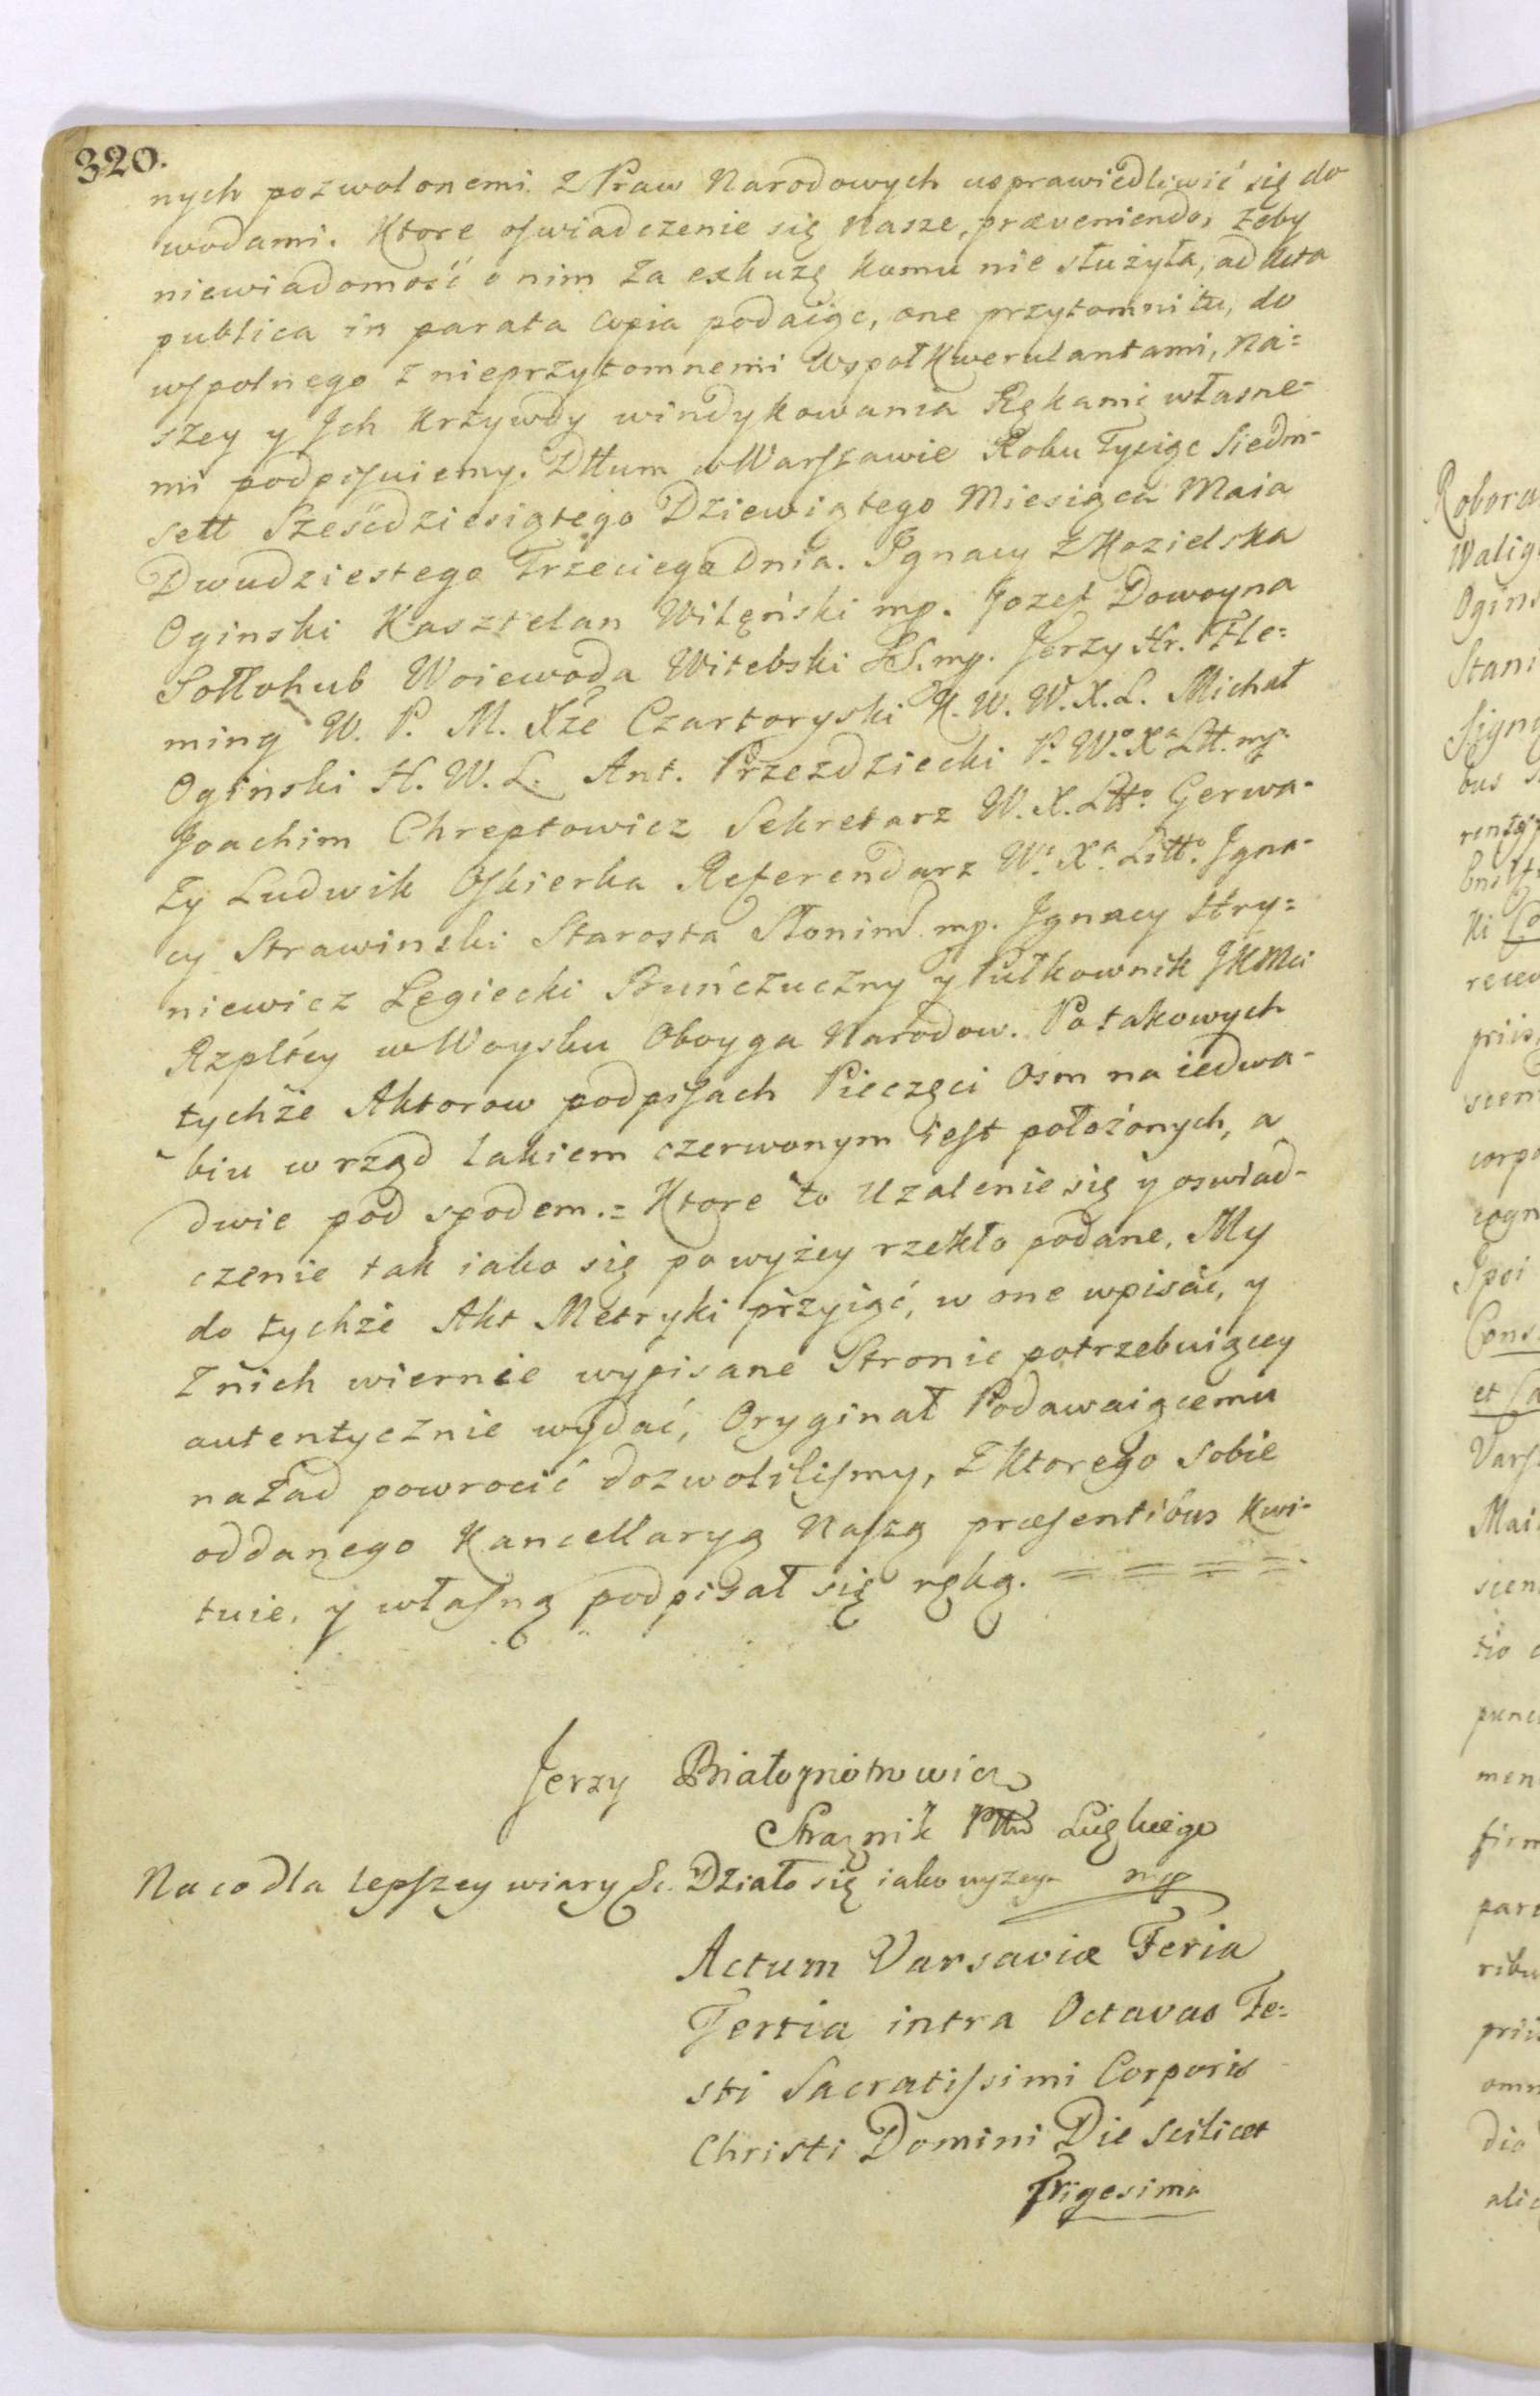 320.
nych pozwolonemi z Praw Narodowych usprawiedliwić się do
wodami. Ktore oswiadczenie się Nasze, præveniendo, żeby
niewiadomość o nim za exkuzę komu nie służyła, ad Acta
publica in parata copia podaiąc, one przytomni tu, do
wspolnego z nieprzytomnemi Wspoł Kwerulantami, Na=
szey y Ich Krzywdy windykowania Rękami własne-
mi podpisuiemy. Dttum w Warszawie Roku Tysiąc Siedm-
sett Sześćdziesiątego Dziewiątego Miesiąca Maia
Dwudziestego Trzeciego Dnia. Ignacy z Kozielska
Oginski Kasztelan Wileński mp. Jozef Dowoyna
Sołłohub Woiewoda Witebski LS. mp. Jerzy Hr. Fle=
ming W. P. M. Xże Czartoryski K. W. W. X. L. Michał
Oginski H. W. L. Ant. Przezdziecki P. Wo. Xa Ltt. mp.
Joachim Chreptowicz Sekretarz W. X. Ltto. Gerwa-
zy Ludwik Oskierka Referendarz W. Xa. Litto. Igna-
cy Strawinski Starosta Słonims. mp. Ignacy Stry=
niewicz Łegiecki Buńczuczny y Pułkownik JKMci
Rzpltéy w Woysku Oboyga Narodow. Po takowych
tychże Aktorow podpisach Pieczęci Osm na iedwa-
biu w rząd lakiem czerwonym iest położonych, a
dwie pod spodem.= Ktore to Uzalenie się y oswiad-
czenie tak iako się powyżey rzekło podane, My
do tychże Akt Metryki przyiąć, w one wpisać, y
z nich wiernie wypisane Stronie potrzebuiącey
autentycznie wydać, Oryginał Podawaiącemu
nazad powrocić dozwolilismy, z Ktorego sobie
oddanego Kancellaryą Naszą præsentibus Kwi-
tuie, y własną podpisał się ręką. = = = =.
Jerzy
Strażnik Pttu
Na co dla lepszey wiary &c. Działo się iako wyzey. mp
Actum Varsaviæ Feria
Tertia intra Octavas Fe=
sti Sacratissimi Corporis
Christi Domini Die scilicet
Trigesima
Oginsk
Stani